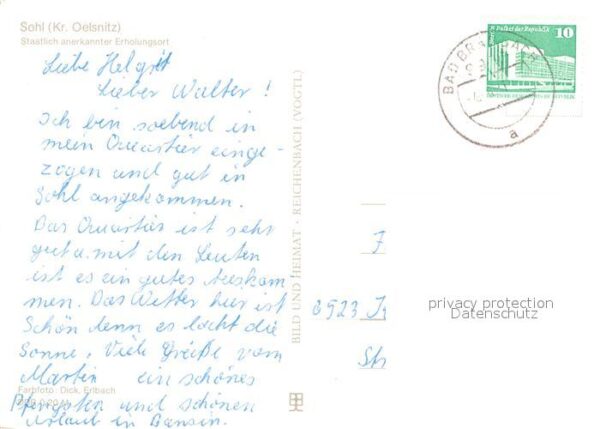 Sohl (Kr. Oelsnitz)
Staatlich anerkannter Erholungsort
Liebe Helgrit
Lieber Walter!
Ich bin soebend in
mein Quartier einge-
zogen und gut in
Sohl angekommen.
Das Quartier ist sehr
gut u. mit den Leuten
ist es ein gutes auskom
men. Das Wetter hier ist
Schön denn es lacht die
Sonne. Viele Grüße vom
Martin ein schönes
Pfingsten und schönen
Urlaub in Bansin.
Farbfoto: Dick, Erlbach
BILD UND HEIMAT · REICHENBACH (VOGTL)
BAD BRAMBACH
a
Palast der Republik
10
DDR
J
6523 J
Str
privacy protection
Datenschutz